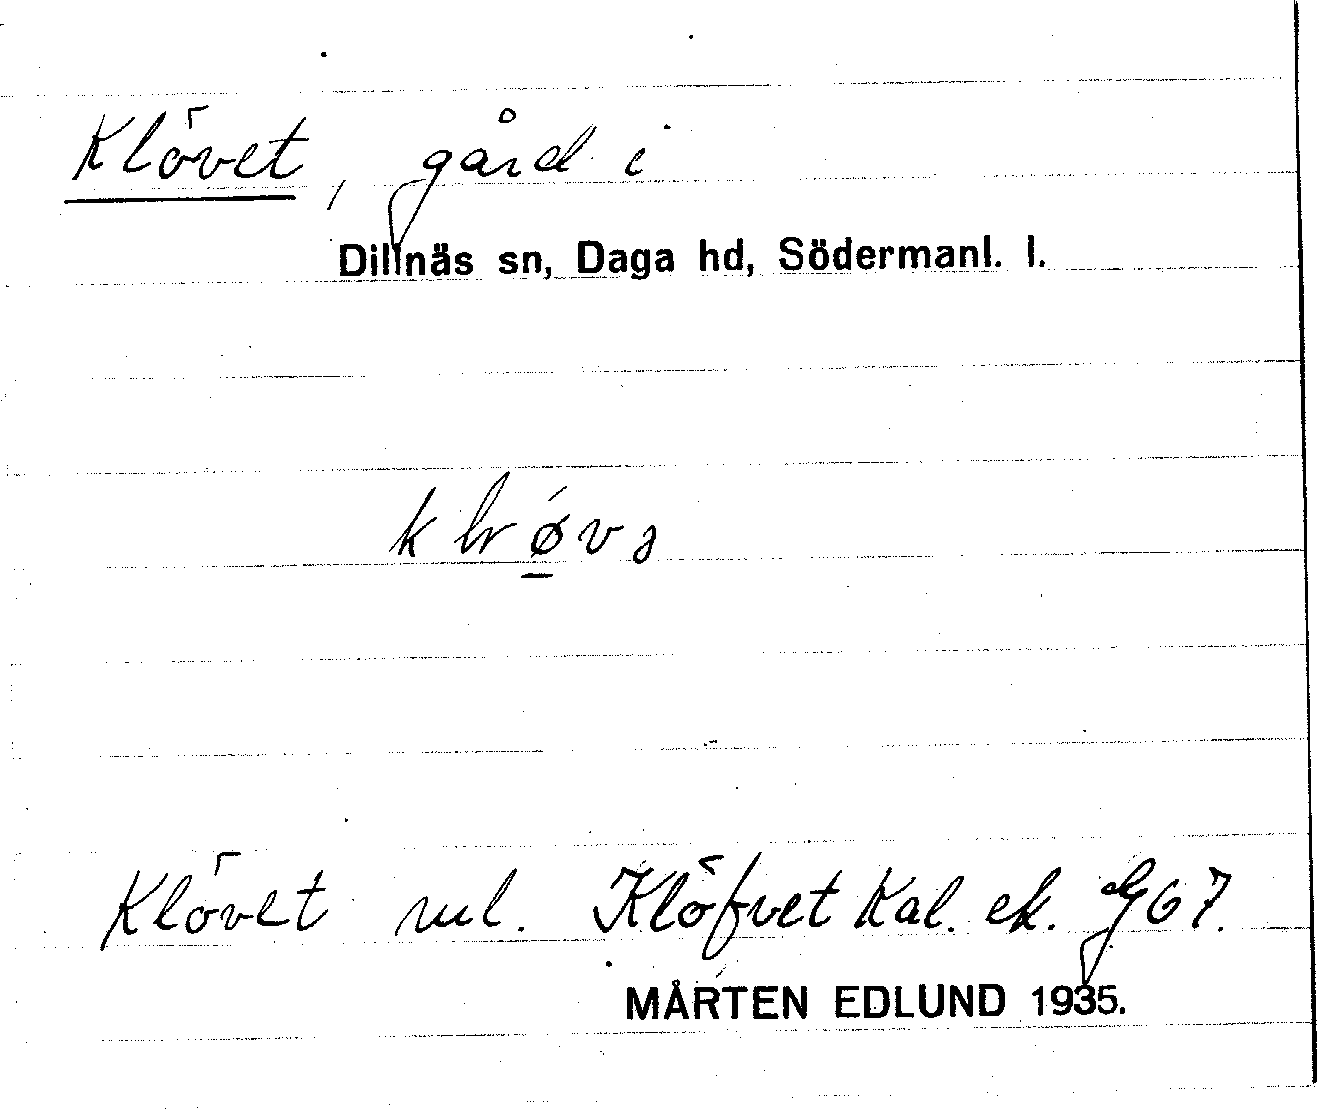 Klövet, gård i
Dillnäs sn, Daga hd, Södermanl. l.
Klövet rul. Klöfvet Kal. ek. G67.
MÅRTEN EDLUND 1935.